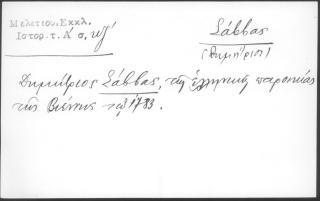 Μελετίου, Εκκλ.
Ιστορ. τ. Α΄ σ.
Σάββας
(Δημήτριος)
Δημήτριος Σάββας, τῆς ἑλληνικῆς παροικίας
τῆς Βιέννης τῷ 1783.